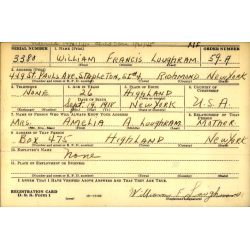 SERIAL NUMBER 1. NAME (Print) ORDER NUMBER
3380 WILLIAM FRANCIS LOUGHRAM 59-A
2. ADDRESS (Print)
449 ST. PAULS AVE. STAPLETON, RICHMOND NEW YORK
3. TELEPHONE 4. AGE IN YEARS 5. PLACE OF BIRTH 6. COUNTRY OF CITIZENSHIP
NONE 26 HIGHLAND
DATE OF BIRTH
Sept. 14, 1915 NEW YORK U.S.A.
7. NAME OF PERSON WHO WILL ALWAYS KNOW YOUR ADDRESS 8. RELATIONSHIP OF THAT PERSON
MRS. AMELIA A LOUGHRAM MOTHER
9. ADDRESS OF THAT PERSON
BOX 47 HIGHLAND NEW YORK
10. EMPLOYER'S NAME
None
11. PLACE OF EMPLOYMENT OR BUSINESS
I AFFIRM THAT I HAVE VERIFIED ABOVE ANSWERS AND THAT THEY ARE TRUE.
REGISTRATION CARD
D. S. S. Form 1
William F. Loughram